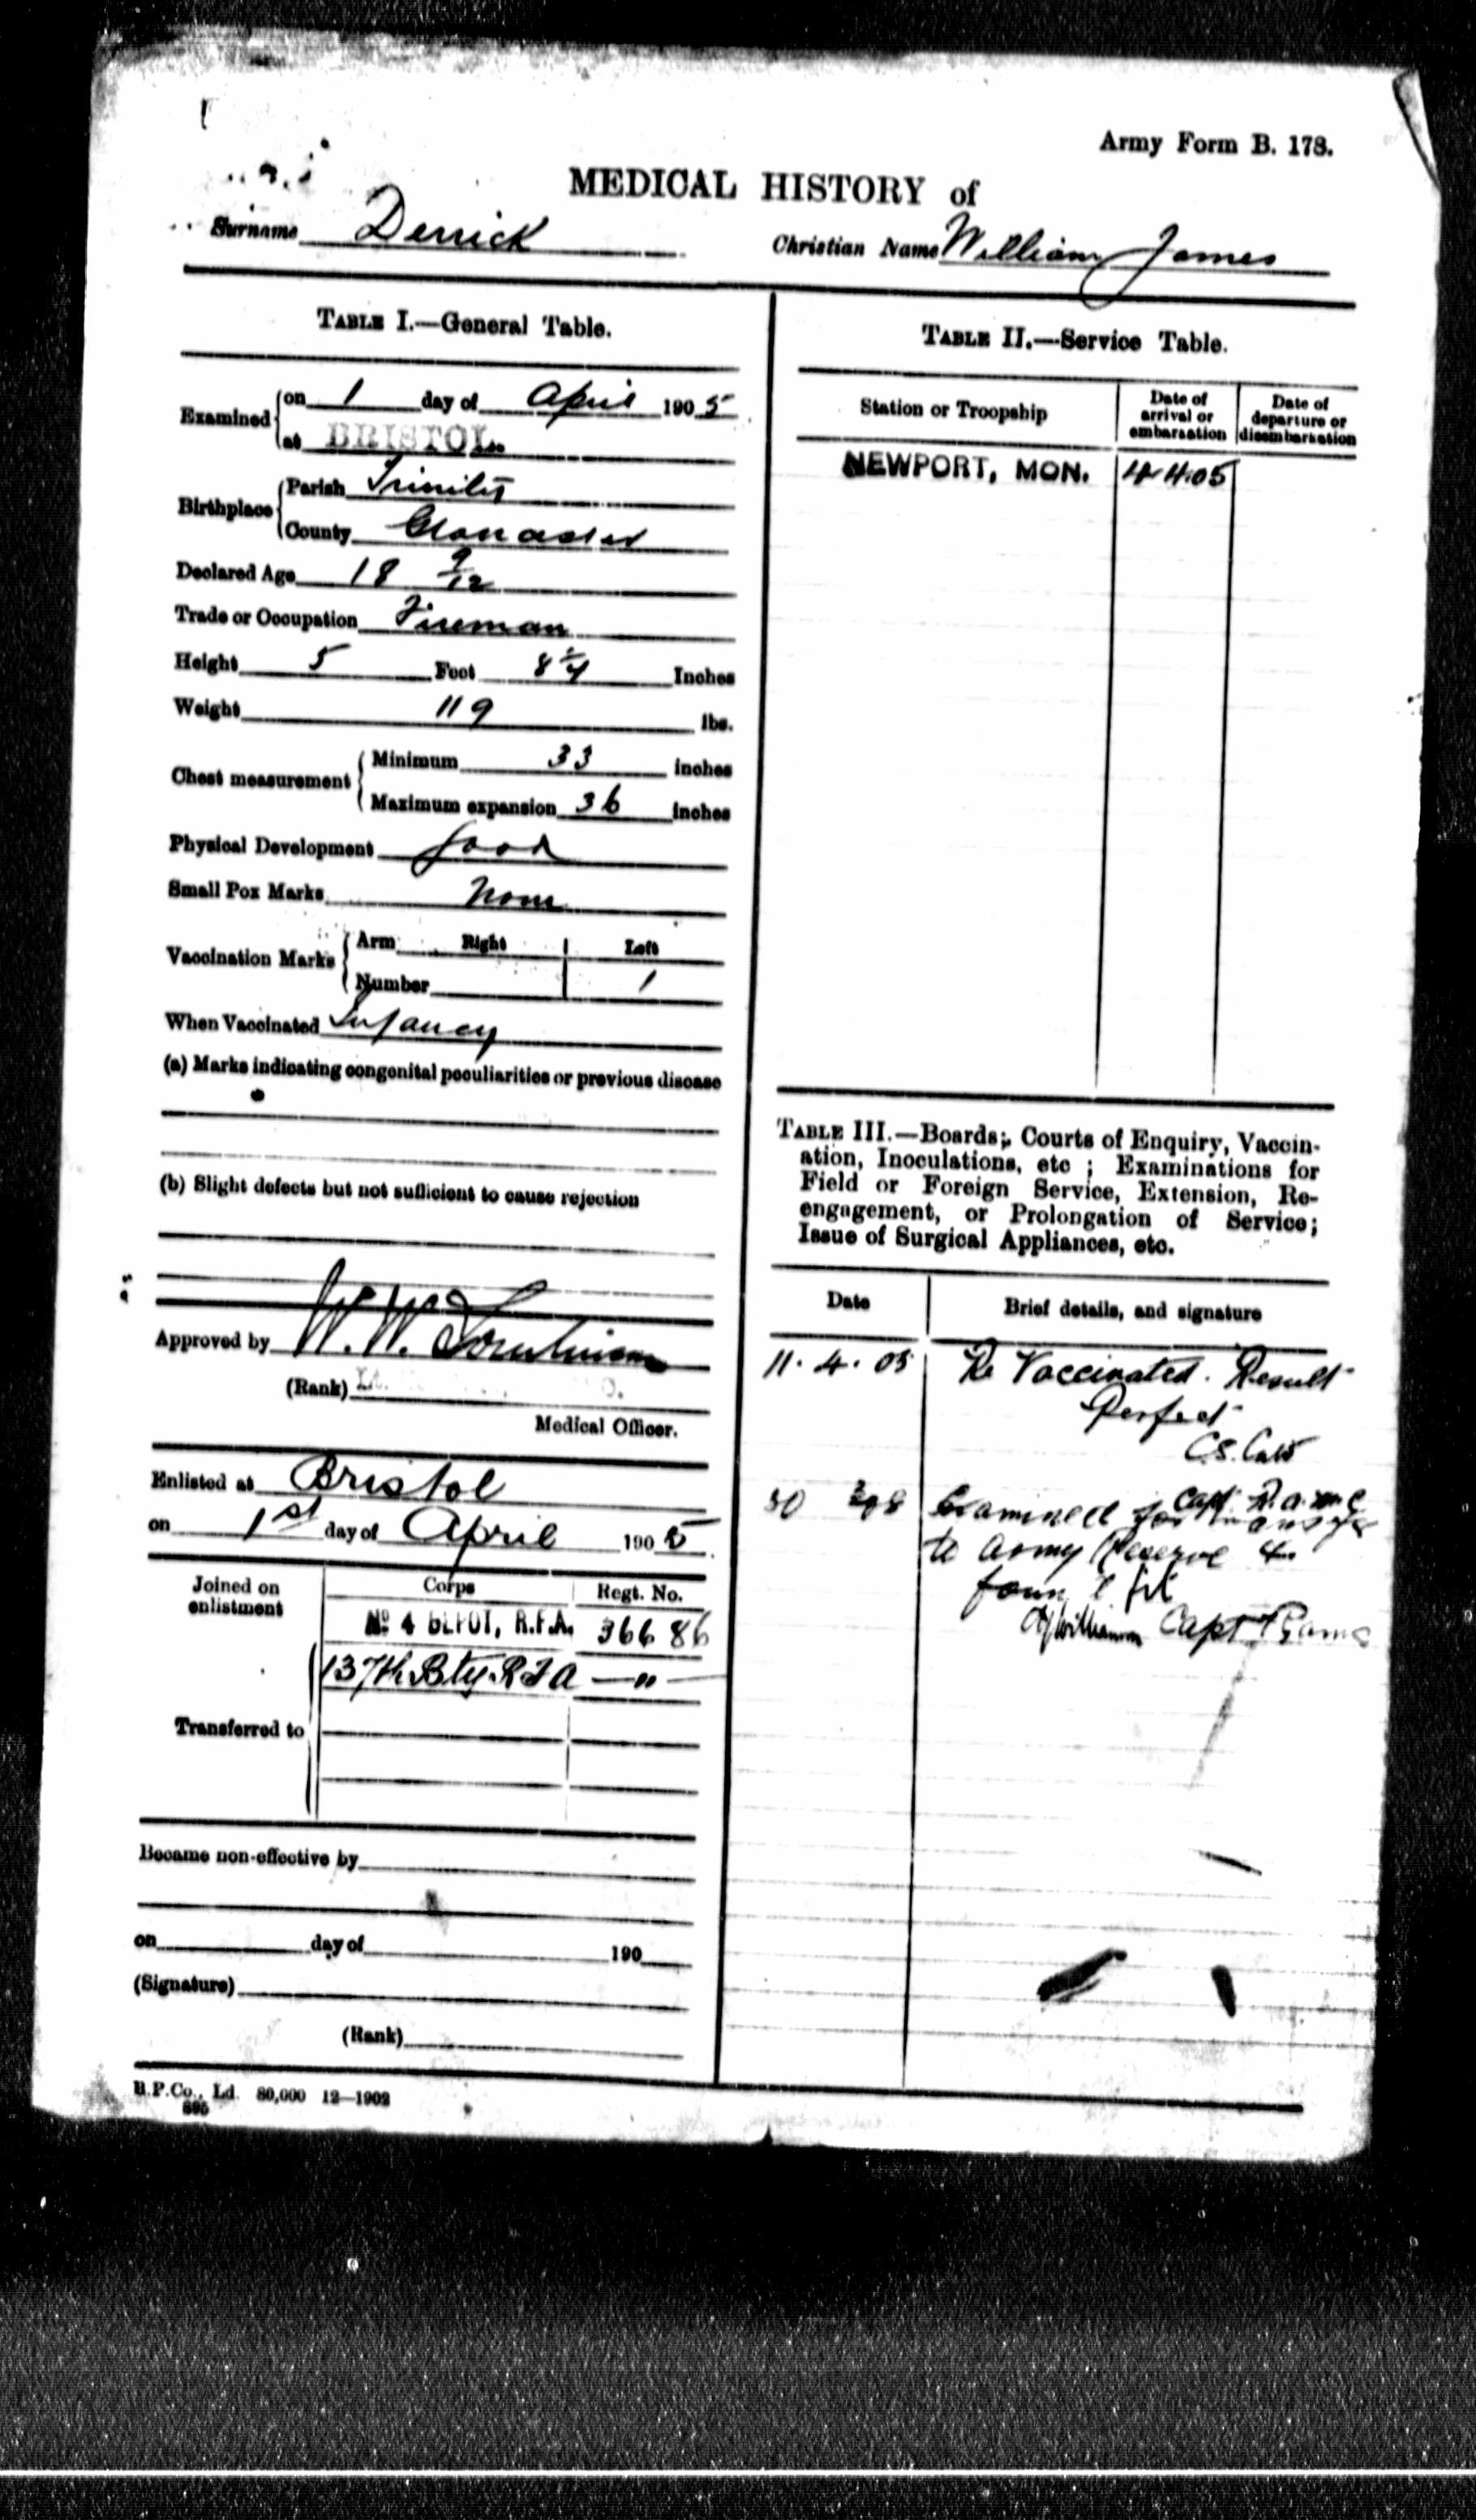 Army Form B. 178.
MEDICAL HISTORY of
Surname Derrick Christian Name William James
TABLE I.—General Table.
Examined on 1 day of April 1905
at BRISTOL
Birthplace Parish Trinity
County Gloucester
Declared Age 18 9/12
Trade or Occupation Fireman
Height 5 Feet 8 1/4 Inches
Weight 119 lbs.
Chest measurement Minimum 33 inches
Maximum expansion 36 inches
Physical Development Good
Small Pox Marks None
Vaccination Marks Arm Right Left
Number 1
When Vaccinated Infancy
(a) Marks indicating congenital peculiarities or previous disease
(b) Slight defects but not sufficient to cause rejection
Approved by W. W.
(Rank)
Medical Officer.
Enlisted at Bristol
on 1st day of April 1905
Joined on enlistment Corps Regt. No.
No 4 DEPOT, R.F.A. 36686
Transferred to 137th Bty. R F A — " —
Became non-effective by
on day of 190
(Signature)
(Rank)
B.P.Co., Ld. 80,000 12—1902
895
TABLE II.—Service Table.
Station or Troopship
Date of arrival or embarkation
Date of departure or disembarkation
NEWPORT, MON. 4.4.05
TABLE III.—Boards; Courts of Enquiry, Vaccin-
ation, Inoculations, etc ; Examinations for
Field or Foreign Service, Extension, Re-
engagement, or Prolongation of Service;
Issue of Surgical Appliances, etc.
Date Brief details, and signature
11. 4. 05 Re Vaccinated. Result
Perfect
C.S.
Capt. R.A.M.C
30 Examined for transfer
to Army Reserve &
found fit
Williamson Capt RAMC